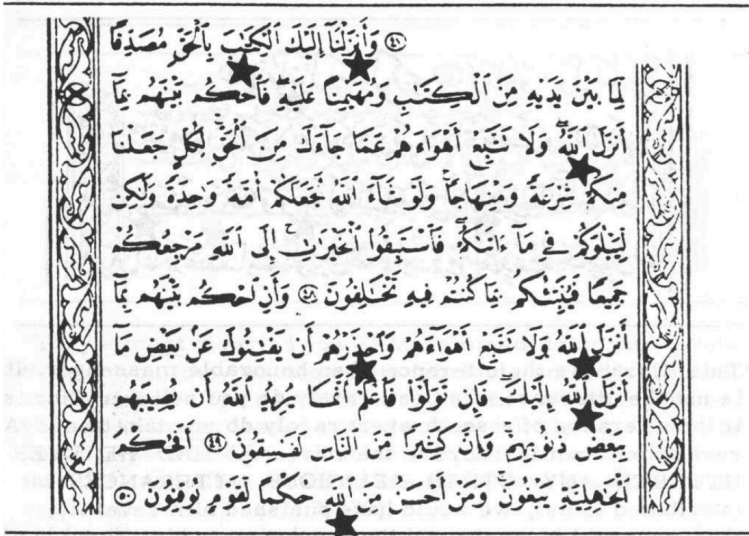 ۝٤٧ وَأَنزَلْنَآ إِلَيْكَ ٱلْكِتَٰبَ بِٱلْحَقِّ مُصَدِّقًا
لِّمَا بَيْنَ يَدَيْهِ مِنَ ٱلْكِتَٰبِ وَمُهَيْمِنًا عَلَيْهِ فَٱحْكُم بَيْنَهُم بِمَآ
أَنزَلَ ٱللَّهُ وَلَا تَتَّبِعْ أَهْوَآءَهُمْ عَمَّا جَآءَكَ مِنَ ٱلْحَقِّ لِكُلٍّ جَعَلْنَا
مِنكُمْ شِرْعَةً وَمِنْهَاجًا وَلَوْ شَآءَ ٱللَّهُ لَجَعَلَكُمْ أُمَّةً وَٰحِدَةً وَلَٰكِن
لِّيَبْلُوَكُمْ فِى مَآ ءَاتَىٰكُمْ فَٱسْتَبِقُوا۟ ٱلْخَيْرَٰتِ إِلَى ٱللَّهِ مَرْجِعُكُمْ
جَمِيعًا فَيُنَبِّئُكُم بِمَا كُنتُمْ فِيهِ تَخْتَلِفُونَ ۝٤٨ وَأَنِ ٱحْكُم بَيْنَهُم بِمَآ
أَنزَلَ ٱللَّهُ وَلَا تَتَّبِعْ أَهْوَآءَهُمْ وَٱحْذَرْهُمْ أَن يَفْتِنُوكَ عَنۢ بَعْضِ مَآ
أَنزَلَ ٱللَّهُ إِلَيْكَ فَإِن تَوَلَّوْا۟ فَٱعْلَمْ أَنَّمَا يُرِيدُ ٱللَّهُ أَن يُصِيبَهُم
بِبَعْضِ ذُنُوبِهِمْ وَإِنَّ كَثِيرًا مِّنَ ٱلنَّاسِ لَفَٰسِقُونَ ۝٤٩ أَفَحُكْمَ
ٱلْجَٰهِلِيَّةِ يَبْغُونَ وَمَنْ أَحْسَنُ مِنَ ٱللَّهِ حُكْمًا لِّقَوْمٍ يُوقِنُونَ ۝٥٠